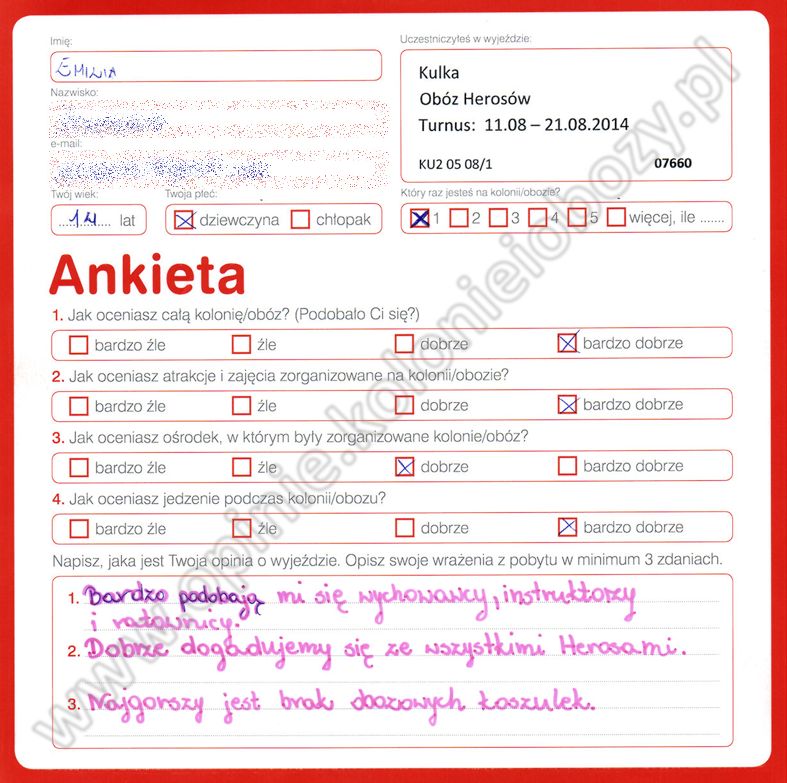 Imię:
EMILIA
Uczestniczyłeś w wyjeździe:
Kulka
Obóz Herosów
Turnus: 11.08 – 21.08.2014
KU2 05 08/1 07660
Nazwisko:
e-mail:
Twój wiek: Twoja płeć: Który raz jesteś na kolonii/obozie?
14 lat dziewczyna chłopak 1 2 3 4 5 więcej, ile .......
Ankieta
1. Jak oceniasz całą kolonię/obóz? (Podobało Ci się?)
bardzo źle źle dobrze bardzo dobrze
2. Jak oceniasz atrakcje i zajęcia zorganizowane na kolonii/obozie?
bardzo źle źle dobrze bardzo dobrze
3. Jak oceniasz ośrodek, w którym były zorganizowane kolonie/obóz?
bardzo źle źle dobrze bardzo dobrze
4. Jak oceniasz jedzenie podczas kolonii/obozu?
bardzo źle źle dobrze bardzo dobrze
Napisz, jaka jest Twoja opinia o wyjeździe. Opisz swoje wrażenia z pobytu w minimum 3 zdaniach.
1. Bardzo podobają mi się wychowawcy, instruktorzy
i ratownicy.
2. Dobrze dogadujemy się ze wszystkimi Herosami.
3. Najgorszy jest brak obozowych koszulek.
www.opinie.kolonieiobozy.pl